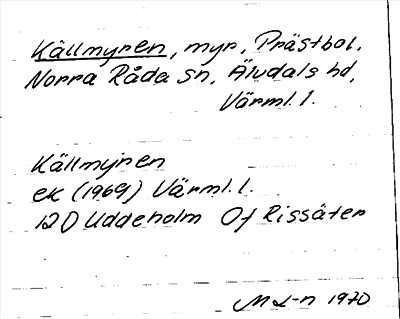 Källmyren, myr, Prästbol,
Norra Råda sn, Älvdals hd,
Värml. l.
Källmyren
ek (1969) Värml. l.
12D Uddeholm Of Rissäter
M L-n 1970